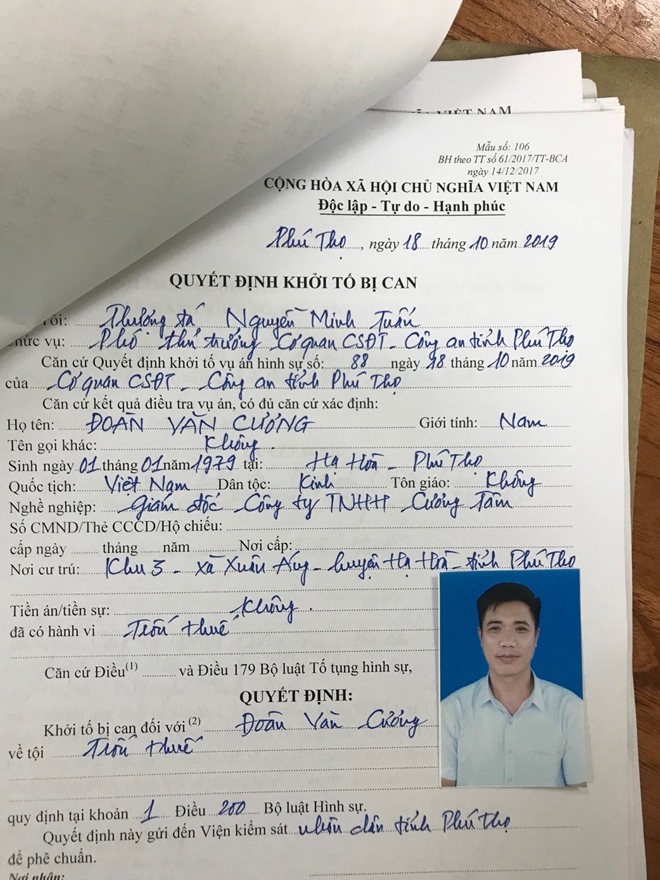 VIỆT NAM
Mẫu số: 106
BH theo TT số 61/2017/TT-BCA
ngày 14/12/2017
CỘNG HÒA XÃ HỘI CHỦ NGHĨA VIỆT NAM
Độc lập - Tự do - Hạnh phúc
Phú Thọ, ngày 18 tháng 10 năm 2019
QUYẾT ĐỊNH KHỞI TỐ BỊ CAN
Tôi: Thượng tá Nguyễn Minh Tuấn
Chức vụ: Phó thủ trưởng Cơ quan CSĐT - Công an tỉnh Phú Thọ
Căn cứ Quyết định khởi tố vụ án hình sự số: 88 ngày 18 tháng 10 năm 2019
của Cơ quan CSĐT - Công an tỉnh Phú Thọ
Căn cứ kết quả điều tra vụ án, có đủ căn cứ xác định:
Họ tên: ĐOÀN VĂN CƯƠNG Giới tính: Nam
Tên gọi khác: Không.
Sinh ngày 01 tháng 01 năm 1979 tại: Hạ Hoà - Phú Thọ
Quốc tịch: Việt Nam Dân tộc: Kinh Tôn giáo: Không
Nghề nghiệp: Giám đốc Công ty TNHH Cương Tâm
Số CMND/Thẻ CCCD/Hộ chiếu:
cấp ngày tháng năm Nơi cấp:
Nơi cư trú: Khu 3 - xã Xuân Áng - huyện Hạ Hoà - tỉnh Phú Thọ
Tiền án/tiền sự: Không.
đã có hành vi Trốn thuế
Căn cứ Điều(1) và Điều 179 Bộ luật Tố tụng hình sự,
QUYẾT ĐỊNH:
Khởi tố bị can đối với (2) Đoàn Văn Cương
về tội Trốn thuế
quy định tại khoản 1 Điều 200 Bộ luật Hình sự.
Quyết định này gửi đến Viện kiểm sát nhân dân tỉnh Phú Thọ
để phê chuẩn.
Nơi nhận: